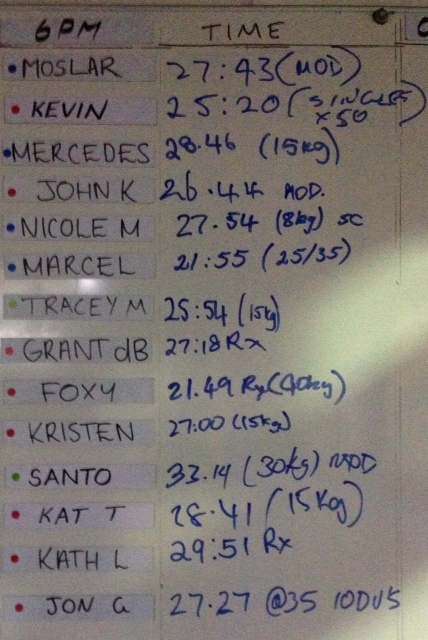 6PM TIME
MOSLAR 27:43 (MOD)
KEVIN 25:20 (SINGLES x50)
MERCEDES 28.46 (15kg)
JOHN K 26.44 MOD.
NICOLE M 27.54 (8kg) SC
MARCEL 21:55 (25/35)
TRACEY M 25:54 (15kg)
GRANT dB 27:18 Rx
FOXY 21.49 Rx (40kg)
KRISTEN 27:00 (15kg)
SANTO 33.14 (30kg) MOD
KAT T 28.41 (15kg)
KATH L 29:51 Rx
JON G 27.27 @35 10DU5